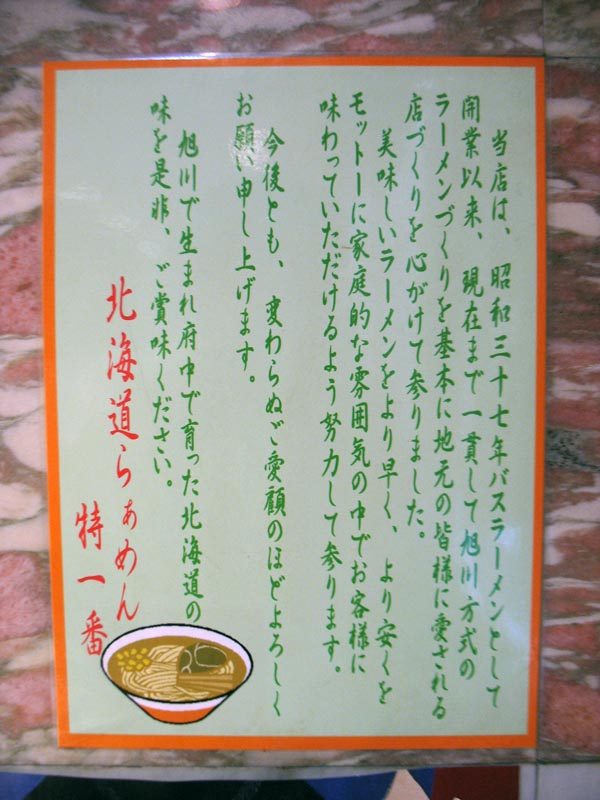 当店は、昭和三十七年バスラーメンとして
開業以来、現在まで一貫して旭川方式の
ラーメンづくりを基本に地元の皆様に愛される
店づくりを心がけて参りました。
美味しいラーメンをより早く、より安くを
モットーに家庭的な雰囲気の中でお客様に
味わっていただけるよう努力して参ります。
今後とも、変わらぬご愛顧のほどよろしく
お願い申し上げます。
旭川で生まれ府中で育った北海道の
味を是非、ご賞味ください。
北海道らぁめん
特一番